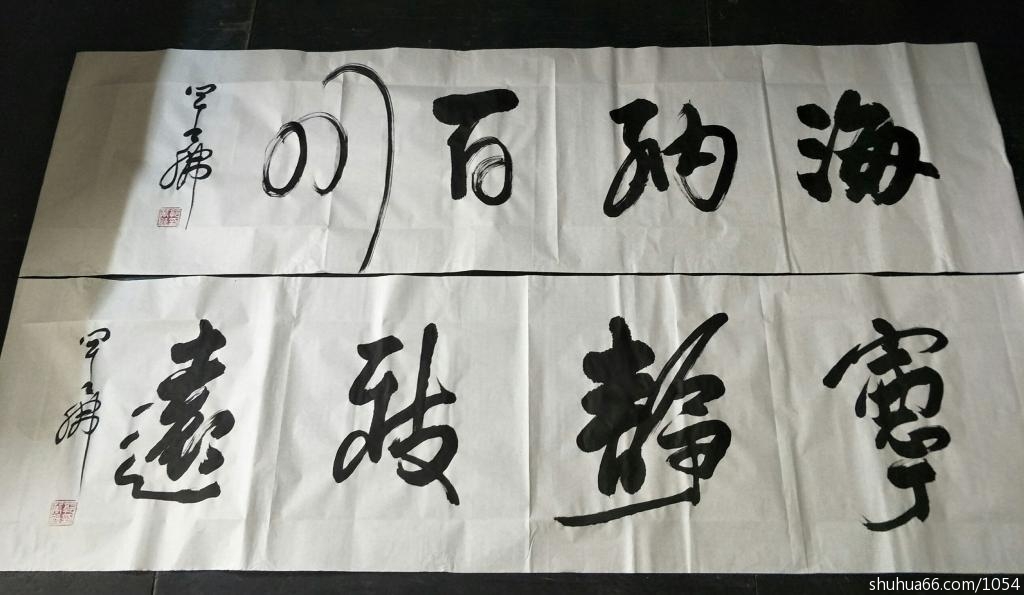 海納百川
寧靜致遠
shuhua66.com/1054